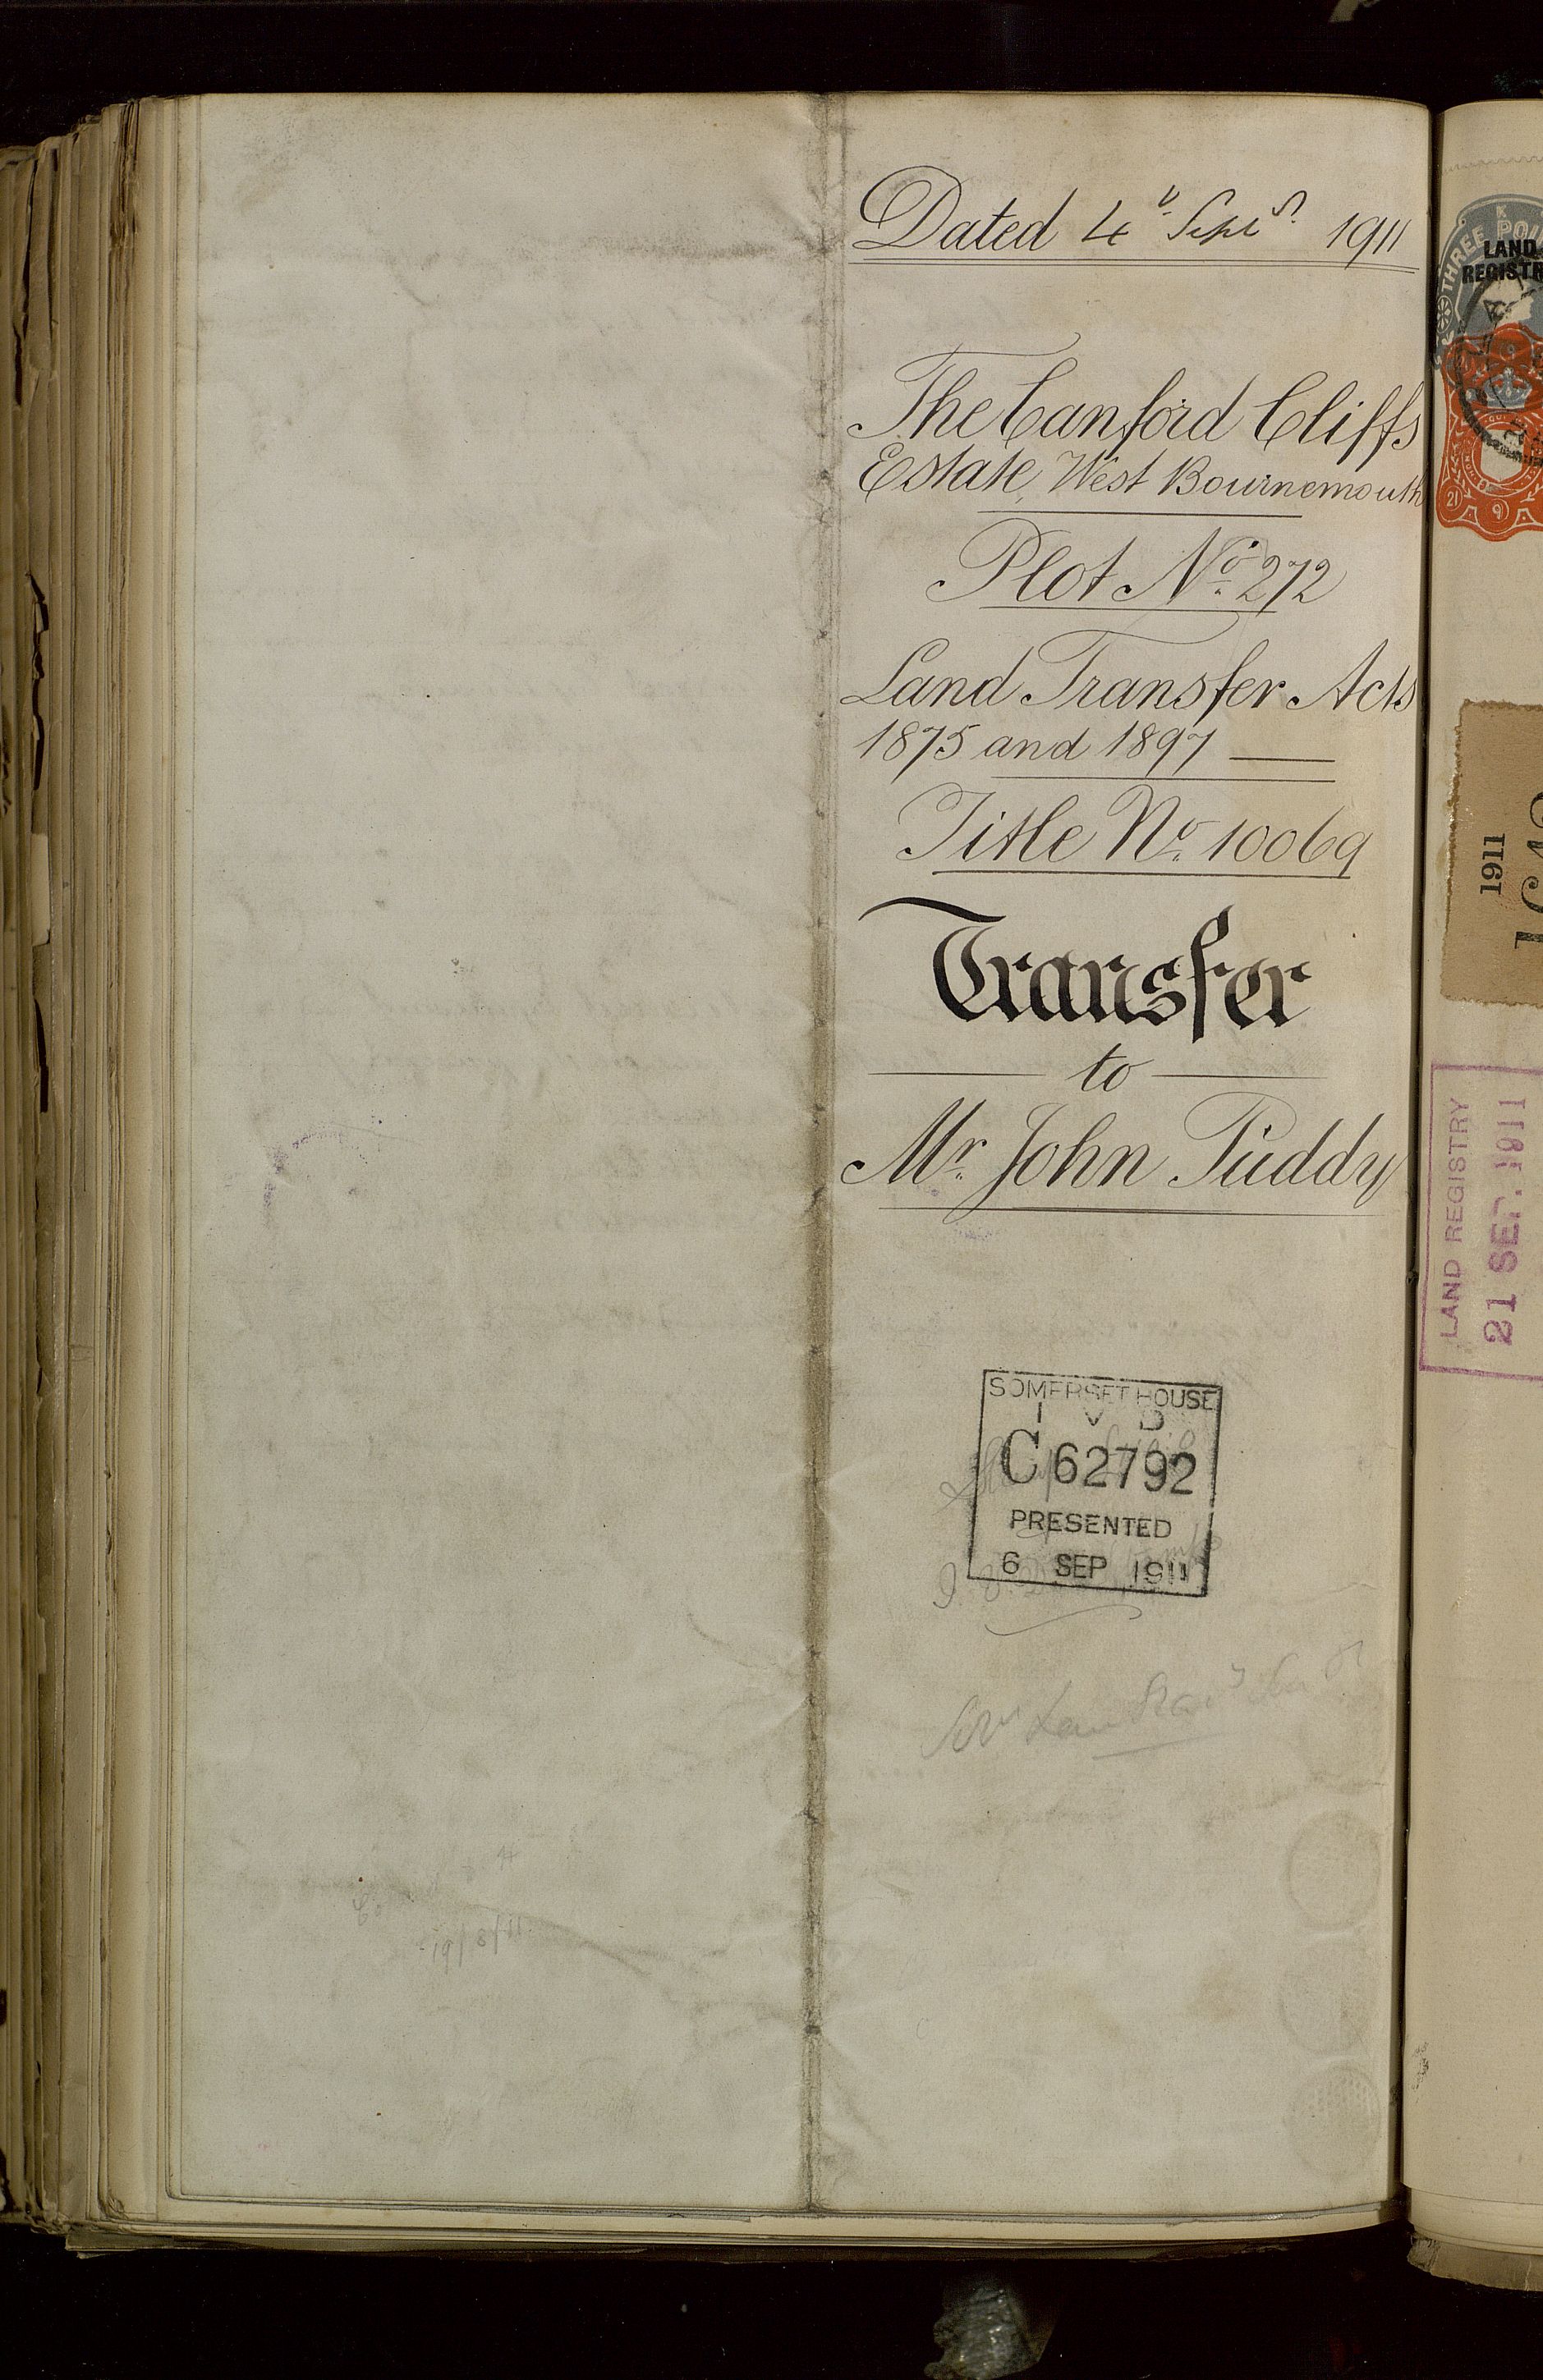 Dated 4th Septr 1911
The Canford Cliffs
Estate, West Bournemouth
Plot No. 272
Land Transfer Acts
1875 and 1897
Title No. 10069
Transfer
to
Mr. John Puddy
SOMERSET HOUSE
I V D
C 62792
PRESENTED
6 SEP 1911
19/8/11
THREE
LAND
1911
LAND REGISTRY
21 SEP. 1911